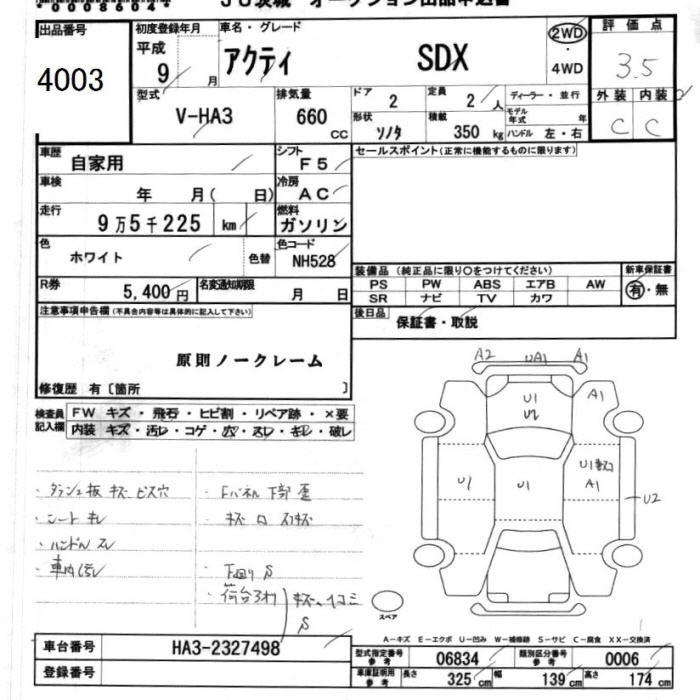 JU茨城 オークション出品申込書
出品番号
4003
初度登録年月
平成
9 月
車名・グレード
アクティ SDX
2WD
・
4WD
評価点
3.5
外装 内装
C C
型式
V-HA3
排気量
660 CC
ドア
2
形状
ソノタ
定員
2 人
積載
350 kg
ディーラー・並行
モデル年式 年
ハンドル 左・右
車歴
自家用
シフト
F5
セールスポイント(正常に機能するものに限ります)
車検
年 月( 日)
冷房
AC
走行
9万5千225 km
燃料
ガソリン
色
ホワイト
色替
色コード
NH528
R券
5,400円
名変通知期限
月 日
装備品(純正品に限り○をつけてください)
PS PW ABS エアB AW
SR ナビ TV カワ
新車保証書
有・無
後日品
保証書・取説
注意事項申告欄(不具合内容等は具体的に記入して下さい)
原則ノークレーム
修復歴 有〔箇所 〕
検査員記入欄
FW キズ・飛石・ヒビ割・リペア跡・×要
内装 キズ・汚レ・コゲ・穴・スレ・キレ・破レ
・ダッシュ板 キズ ビス穴
・シート キレ
・ハンドル スレ
・車内汚レ
・Fパネル下部 歪
・下回り S
・荷台
S
A2 UA1 A1
U1
A1
U1
U1
U1
A1
U2
スペア
A-キズ E-エクボ U-凹み W-補修跡 S-サビ C-腐食 XX-交換済
車台番号
HA3-2327498
登録番号
型式指定番号 参考
06834
類別区分番号 参考
0006
車庫証明用 参考
長さ 325 cm 幅 139 cm 高さ 174 cm